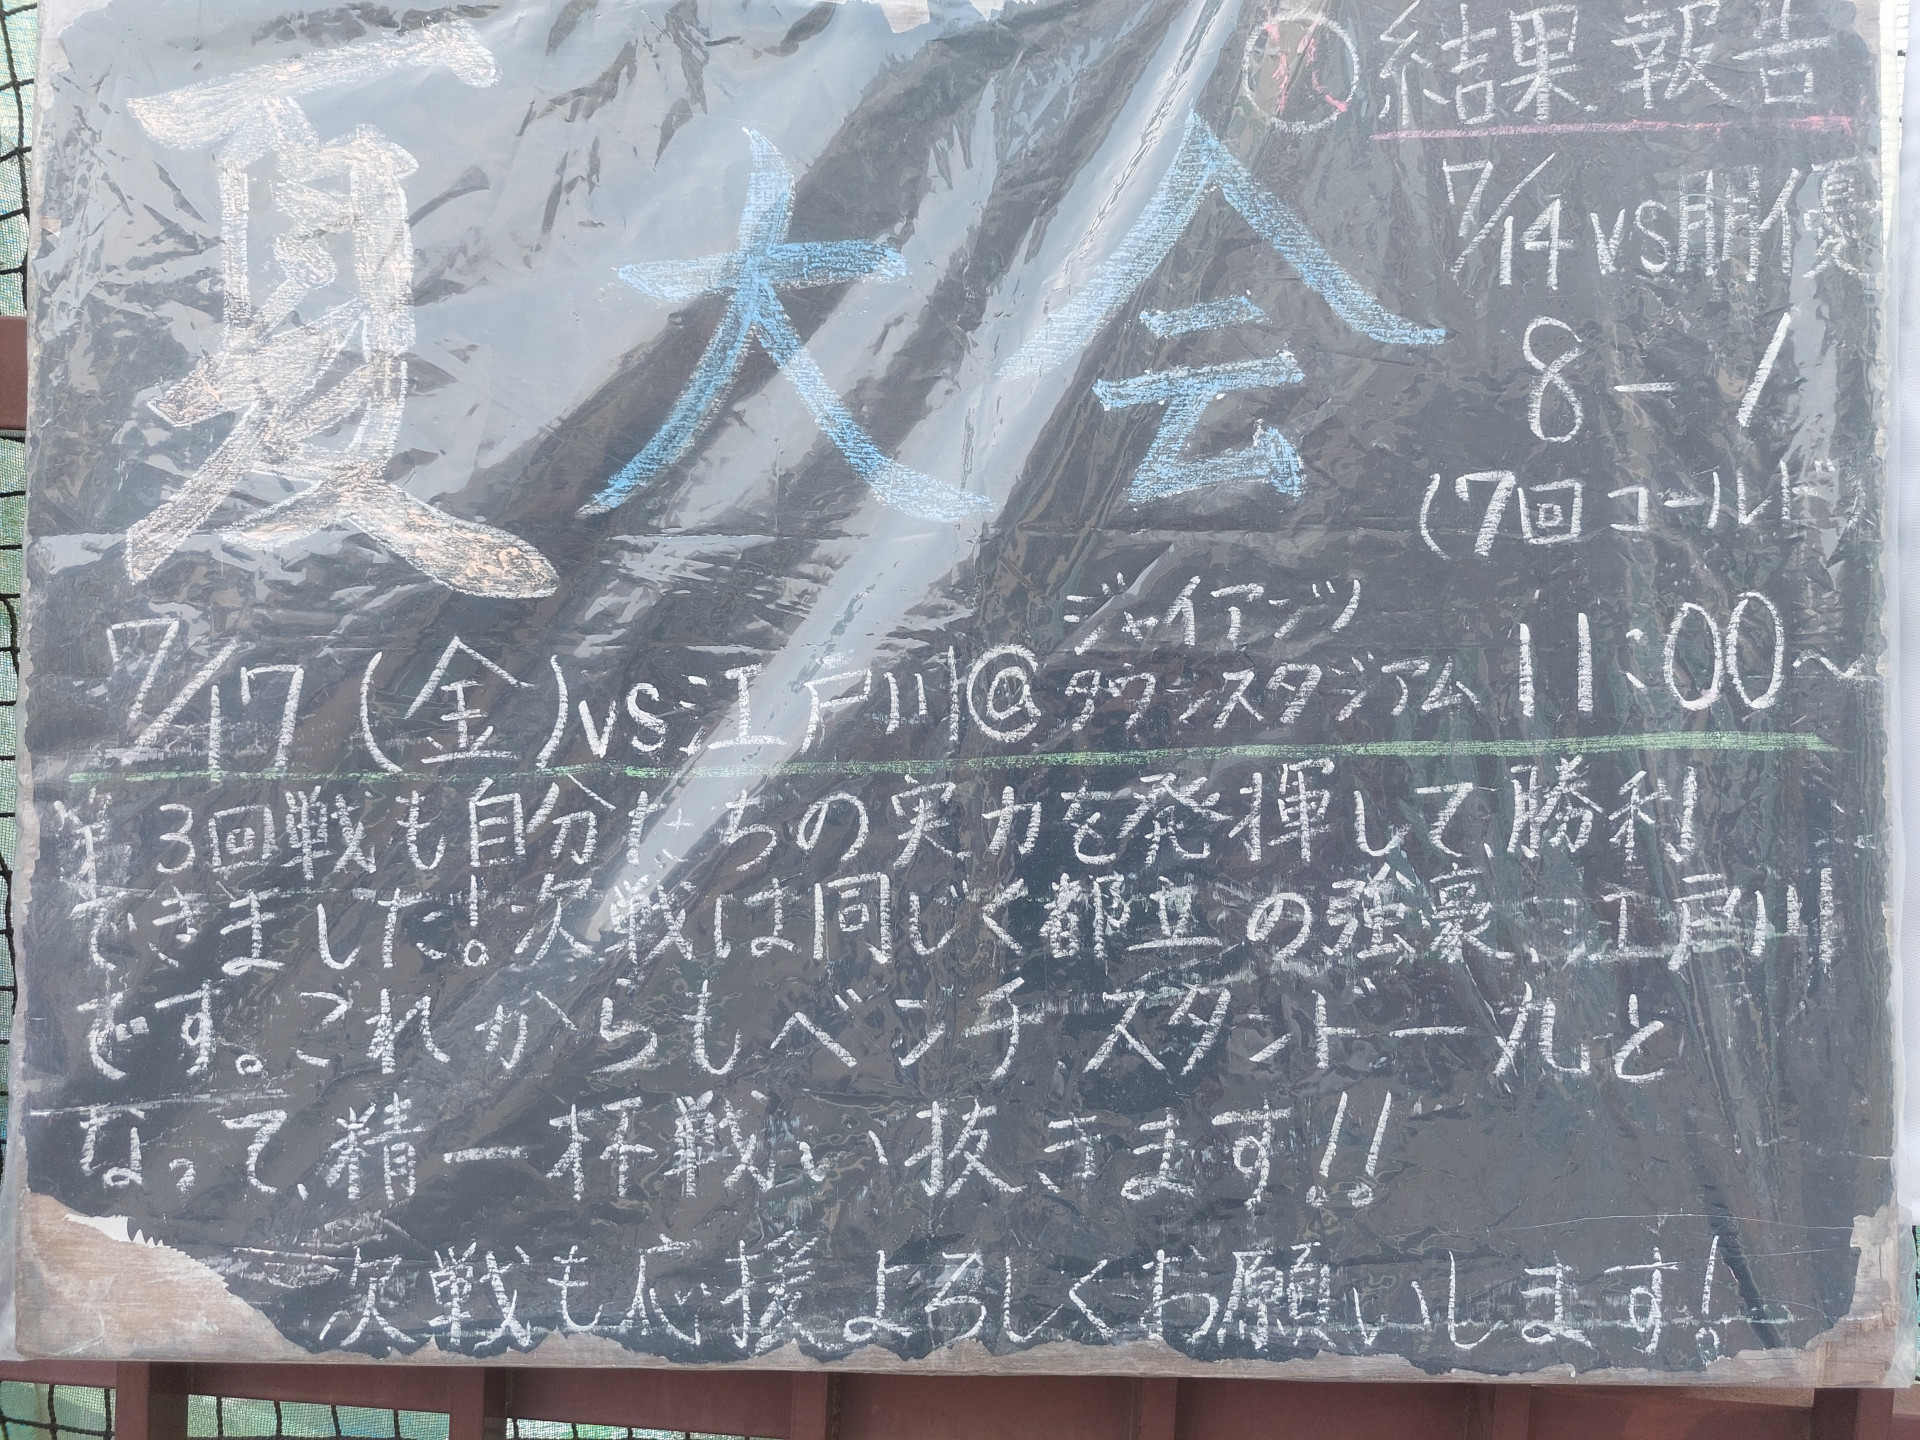 夏大会
結果報告
7/14 vs 朋優
8-1
(7回コールド)
7/17(金)vs江戸川@ジャイアンツタウンスタジアム 11:00~
3回戦も自分たちの実力を発揮して、勝利
できました!次戦は同じく都立の強豪、江戸川
です。これからもベンチ、スタンド一丸と
なって、精一杯戦い抜きます!!
次戦も応援よろしくお願いします!